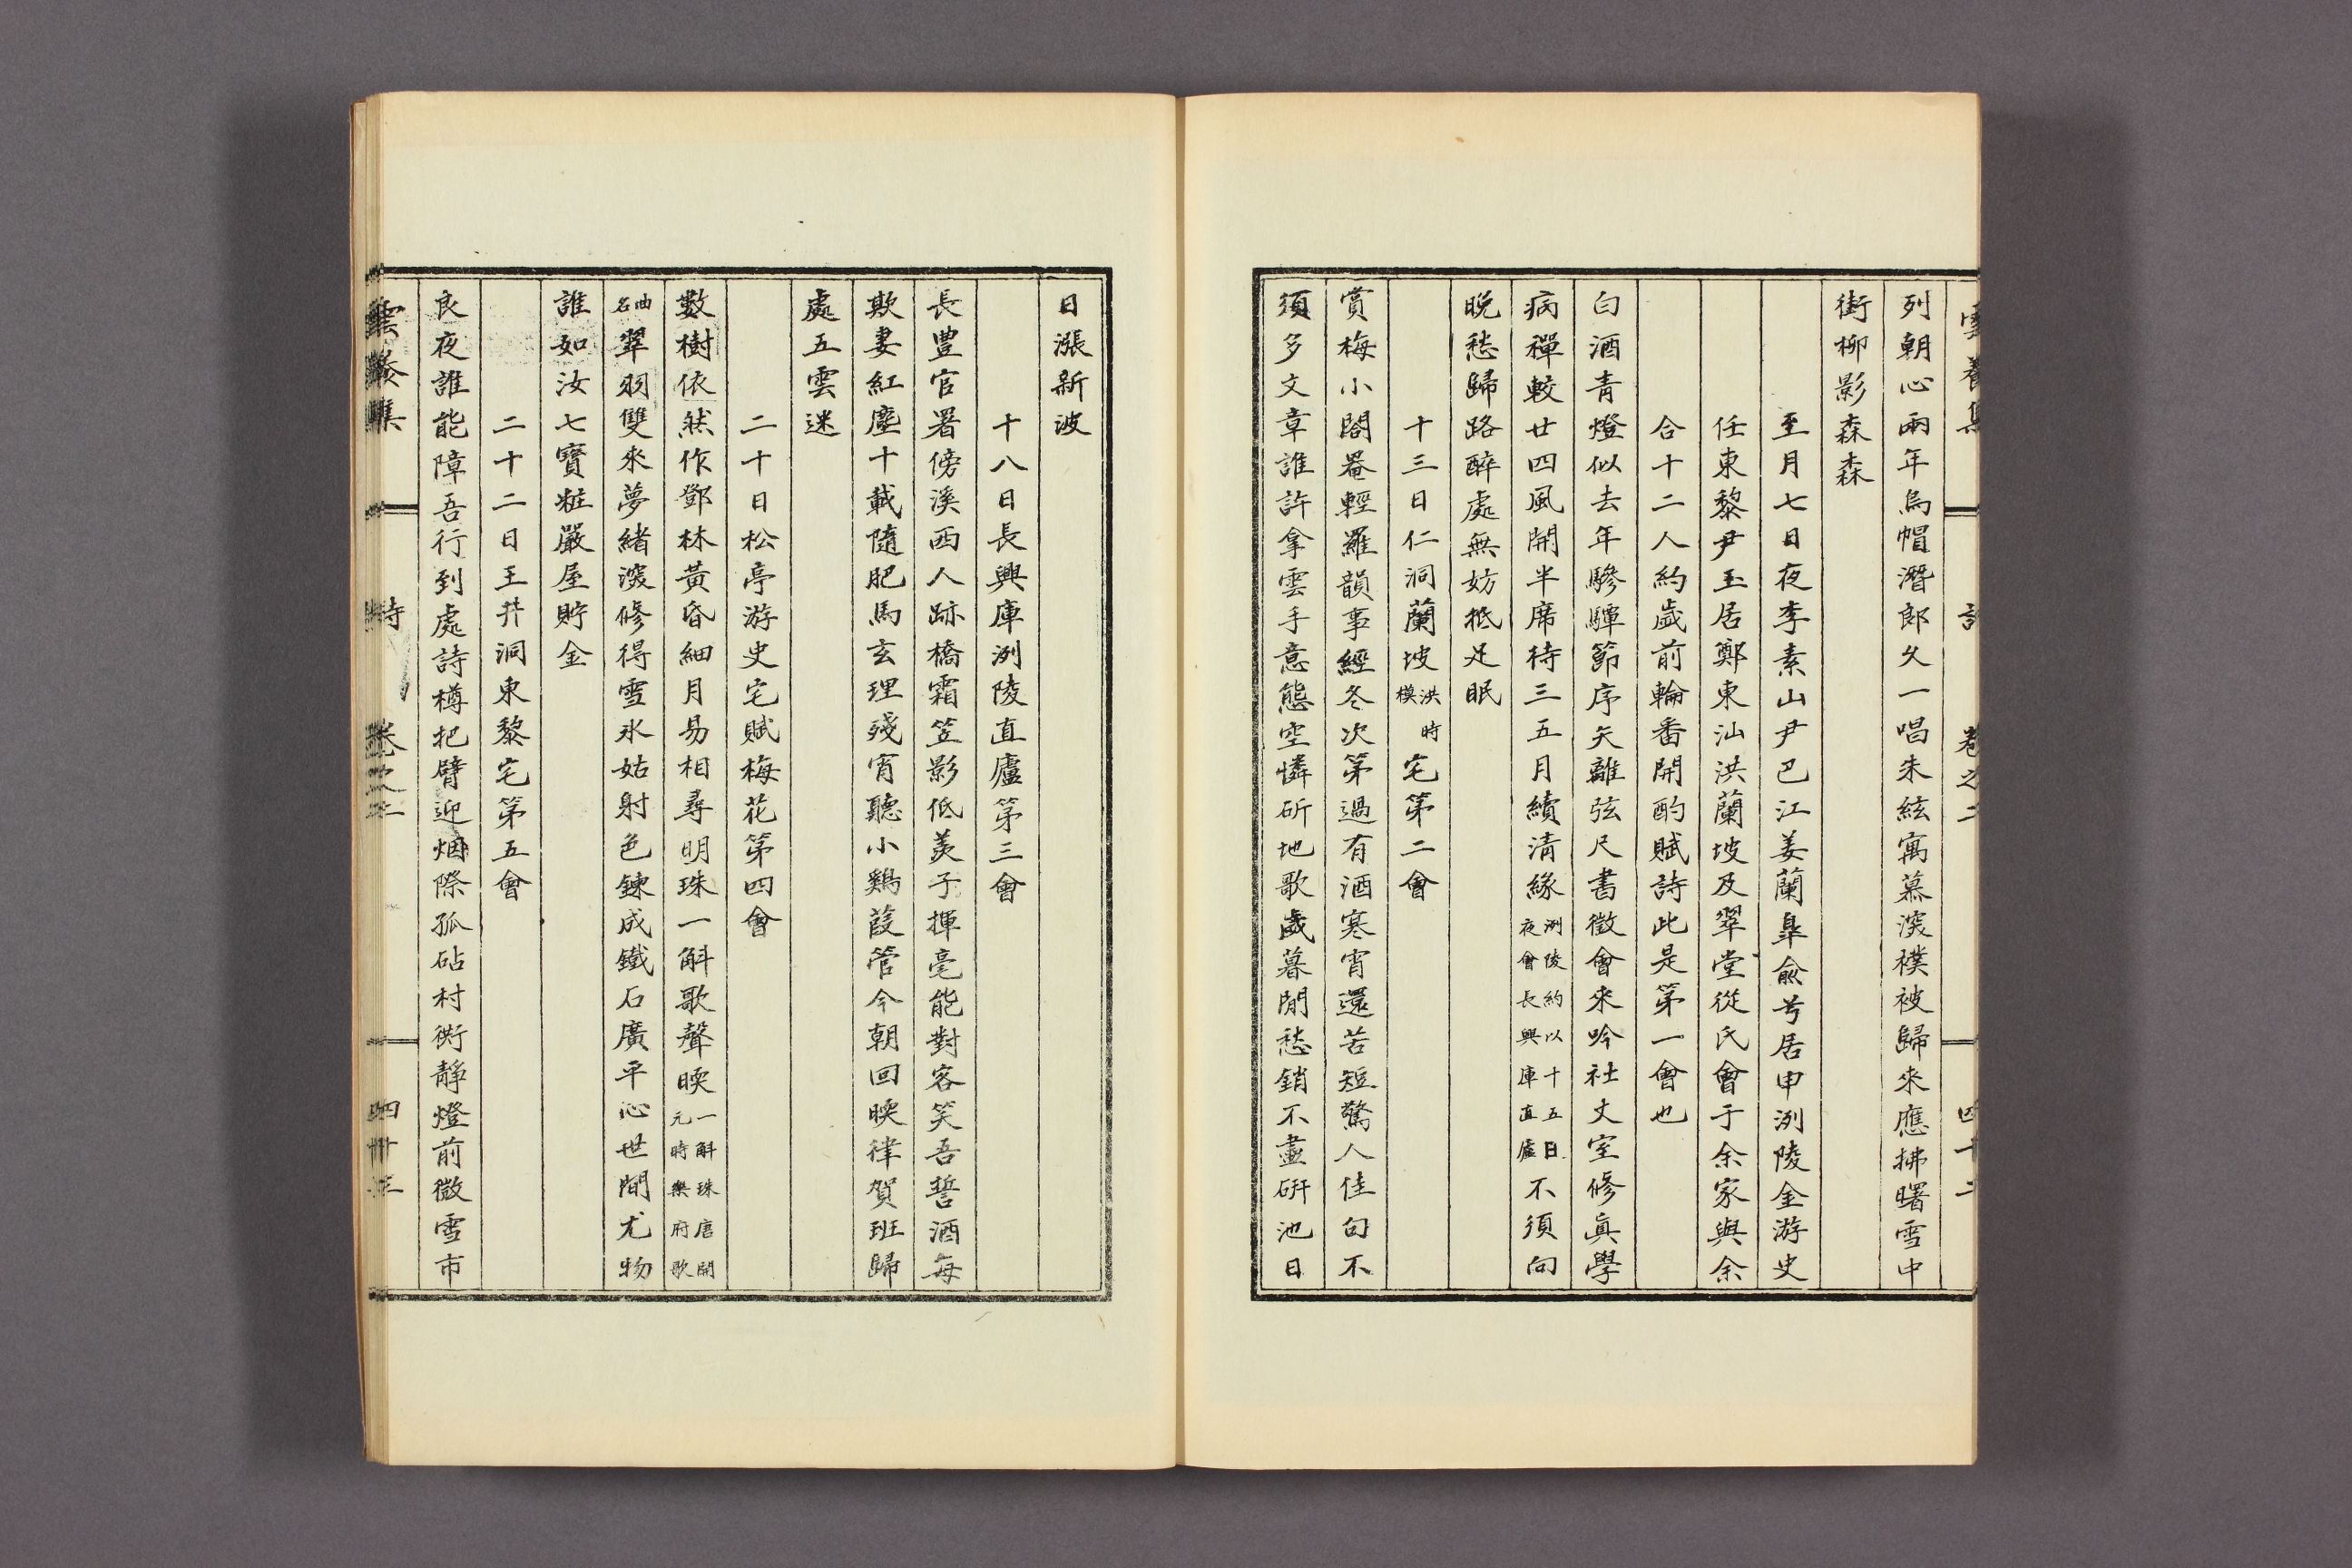 雲養集 詩 卷之二 四十二
列朝心兩年烏帽潛郎久一唱朱絃寓慕深襆被歸來應拂曙雪中
街柳影森森
至月七日夜李素山尹巴江姜蘭皐兪兮居申洌陵金游史
任東黎尹玉居鄭東汕洪蘭坡及翠堂從氏會于余家與余
合十二人約歲前輪番開酌賦詩此是第一會也
白酒青燈似去年驂驔節序矢離弦尺書徵會來吟社丈室修眞學
病禪較廿四風開半席待三五月續清緣洌陵約以十五日夜會長興庫直廬不須向
晚愁歸路醉處無妨抵足眠
十三日仁洞蘭坡洪時模宅第二會
賞梅小閤罨輕羅韻事經冬次第過有酒寒宵還苦短驚人佳句不
須多文章誰許拿雲手意態空憐斫地歌歲暮閒愁銷不盡硏池日
日漲新波
十八日長興庫洌陵直廬第三會
長豊官署傍溪西人跡橋霜笠影低羨子揮毫能對客笑吾誓酒每
欺妻紅塵十載隨肥馬玄理殘宵聽小鷄葭管今朝回暖律賀班歸
處五雲迷
二十日松亭游史宅賦梅花第四會
數樹依然作鄧林黃昏細月易相尋明珠一斛歌聲暎一斛珠唐開元時樂府歌
曲名翠羽雙來夢緖深修得雪氷姑射色鍊成鐵石廣平心世間尤物
誰如汝七寶粧嚴屋貯金
二十二日玉井洞東黎宅第五會
良夜誰能障吾行到處詩樽把臂迎烟際孤砧村衖靜燈前微雪市
雲養集 詩 卷之二 四十三